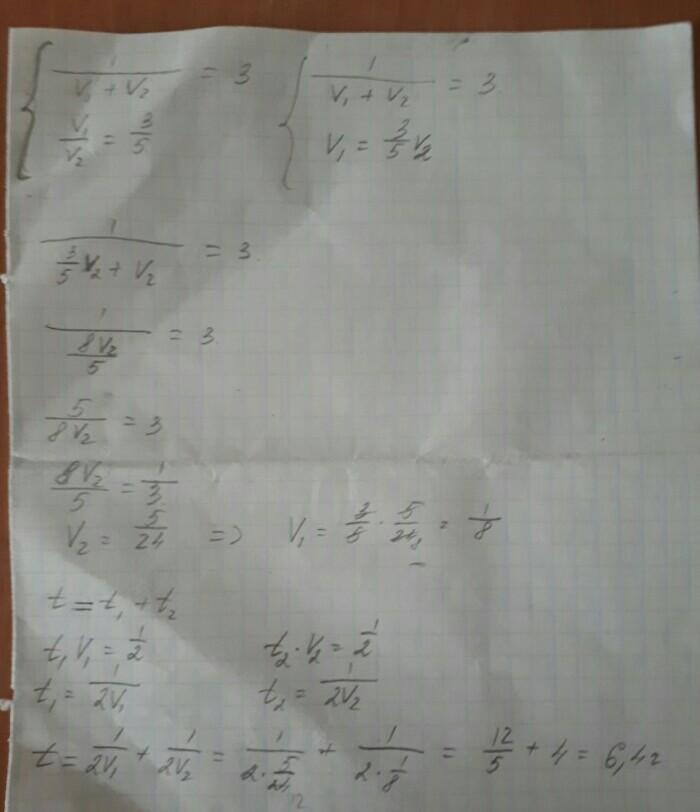 { 1/(V₁ + V₂) = 3 { 1/(V₁ + V₂) = 3
V₁/V₂ = 3/5 V₁ = 3/5 V₂
1/(3/5 V₂ + V₂) = 3
1/(8V₂/5) = 3
5/(8V₂) = 3
8V₂/5 = 1/3
V₂ = 5/24 => V₁ = 3/5 · 5/24₈ = 1/8
t = t₁ + t₂
t₁V₁ = 1/2 t₂·V₂ = 1/2
t₁ = 1/(2V₁) t₂ = 1/(2V₂)
t = 1/(2V₁) + 1/(2V₂) = 1/(2·5/24₁₂) + 1/(2·1/8) = 12/5 + 4 = 6,4г